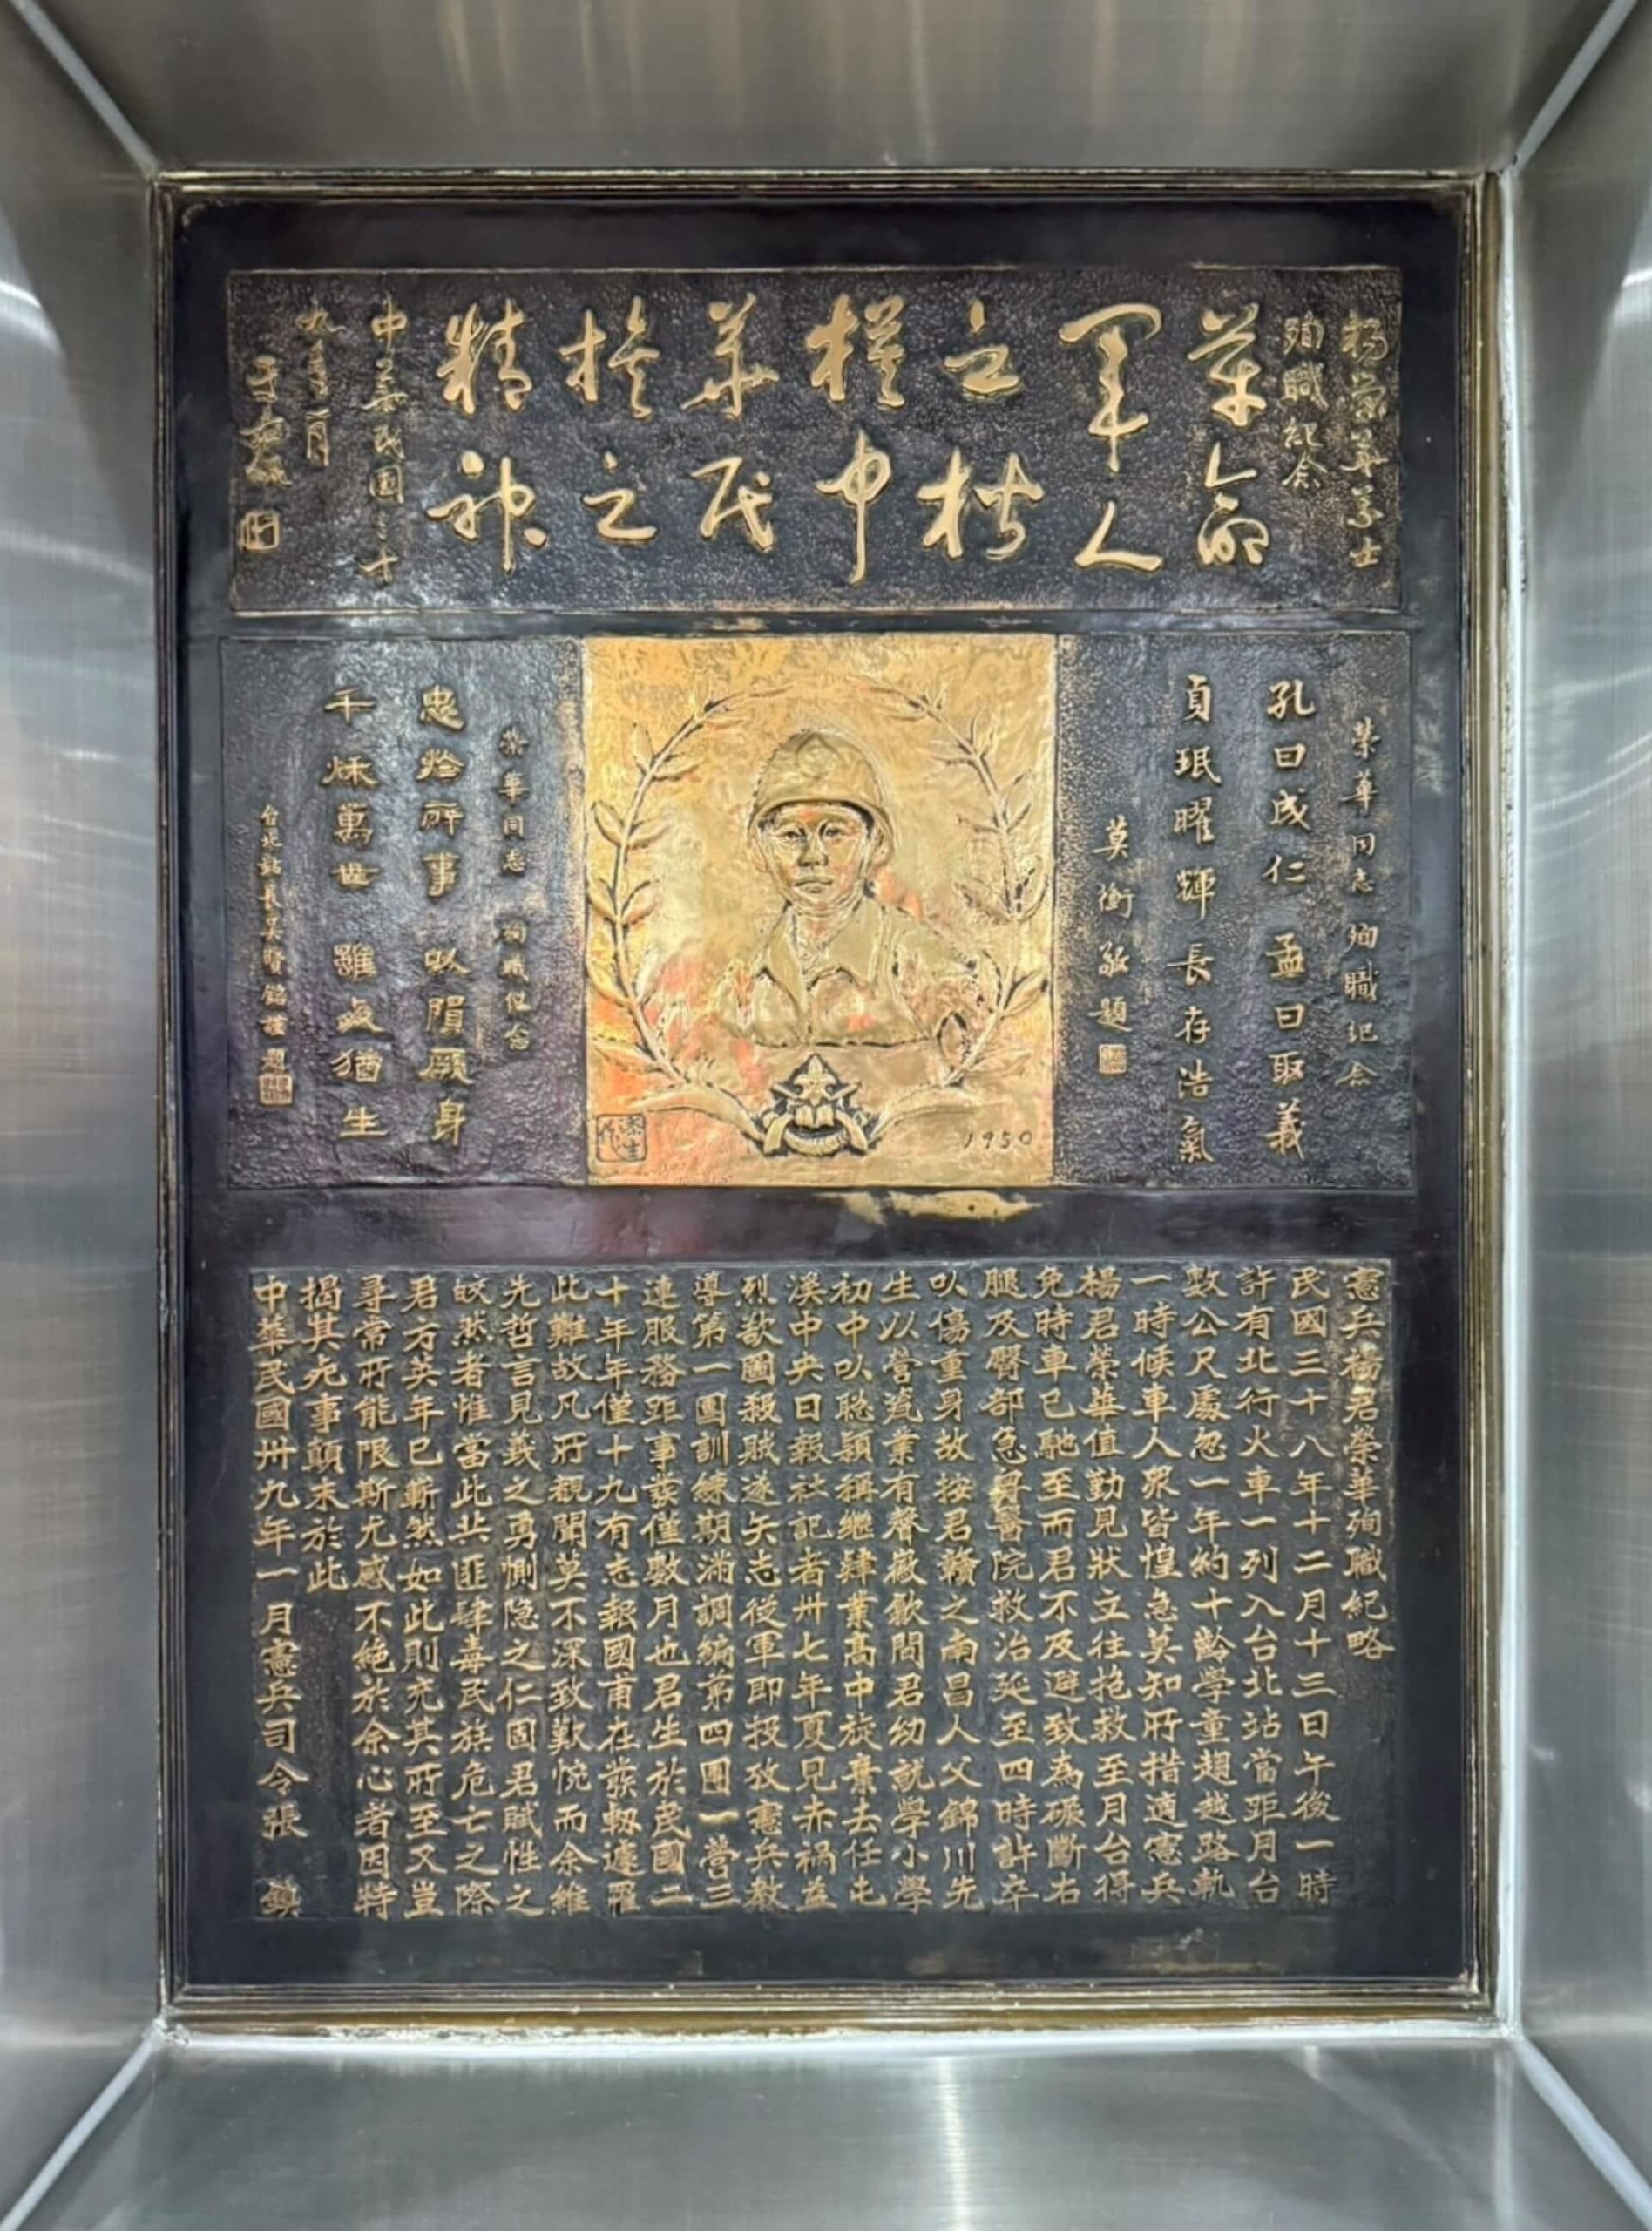 楊榮華學士
殉職紀念
革命
軍人
之楷
模中
華民
族之
精神
中華民國三十
九年一月
于右任
榮華同志殉職紀念
孔曰成仁孟曰取義
貞珉曜輝長存浩氣
莫衡敬題
1950
榮華同志 殉職紀念
忠於所事 以隕厥身
千秋萬世 雖死猶生
台北站長吳賢銘謹題
憲兵楊君榮華殉職紀略
民國三十八年十二月十三日午後一時
許有北行火車一列入台北站當距月台
數公尺處忽一年約十齡學童趨越路軌
一時候車人眾皆惶急莫知所措適憲兵
楊君榮華值勤見狀立往抱救至月台得
免時車已馳至而君不及避致為碾斷右
腿及臀部急舁醫院救治延至四時許卒
以傷重身故按君贛之南昌人父錦川先
生以營瓷業有聲徽歙間君幼就學小學
初中以聰穎稱繼肄業高中旋棄去任屯
溪中央日報社記者卅七年夏見赤禍益
烈欲圖殺賊遂矢志從軍即投效憲兵教
導第一團訓練期滿調編第四團一營三
連服務距事發僅數月也君生於民國二
十年年僅十九有志報國甫在發軔遽罹
此難故凡所觀聞莫不深致歎惋而余維
先哲言見義之勇惻隐之仁固君賦性之
皎然者惟當此共匪肆毒民族危亡之際
君方英年已嶄然如此則充其所至又豈
尋常所能限斯尤感不絕於余心者因特
揭其死事顛末於此
中華民國卅九年一月憲兵司令張 鎮